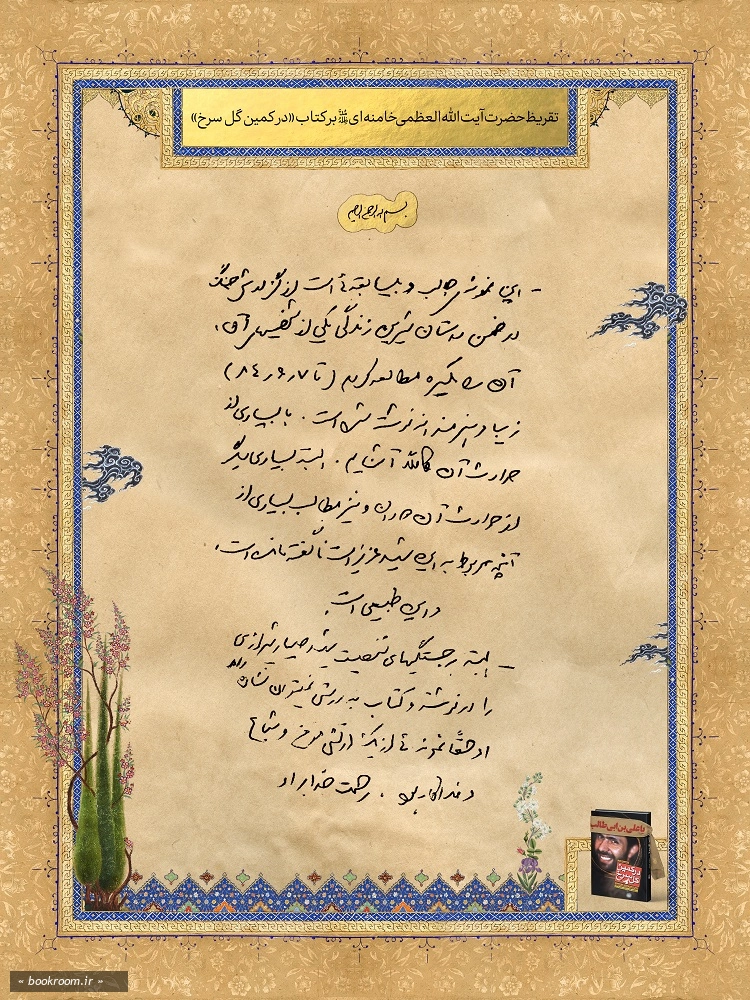 تقریظ حضرت آیت الله العظمی خامنه ای بر کتاب «در کمین گل سرخ»
بسم الله الرحمن الرحیم
- این نمونه‌ی جالب و بی‌سابقه‌ئی است از گزارش جنگ
در ضمن داستان شیرین زندگی یکی از شخصیتهای آن.
آن را یکسره مطالعه کردم (تا ۷ر۶ر۸۴)
زیبا و هنرمندانه نوشته شده است. با بسیاری از
حوادث آن کاملاً آشنایم. البته بسیاری دیگر
از حوادث آن دوران و نیز مطالب بسیاری از
آنچه مربوط به این شهید عزیز است ناگفته مانده است.
و این طبیعی است.
- البته برجستگیهای شخصیت شهید صیاد شیرازی
را در نوشته و کتاب به درستی نمیتوان نشان داد
او حقاً نمونه‌ئی از یک ارتشی مؤمن و شجاع
و فداکار بود. رحمت خدا بر او
یا علی بن ابی طالب
در کمین
گل سرخ
« bookroom.ir »